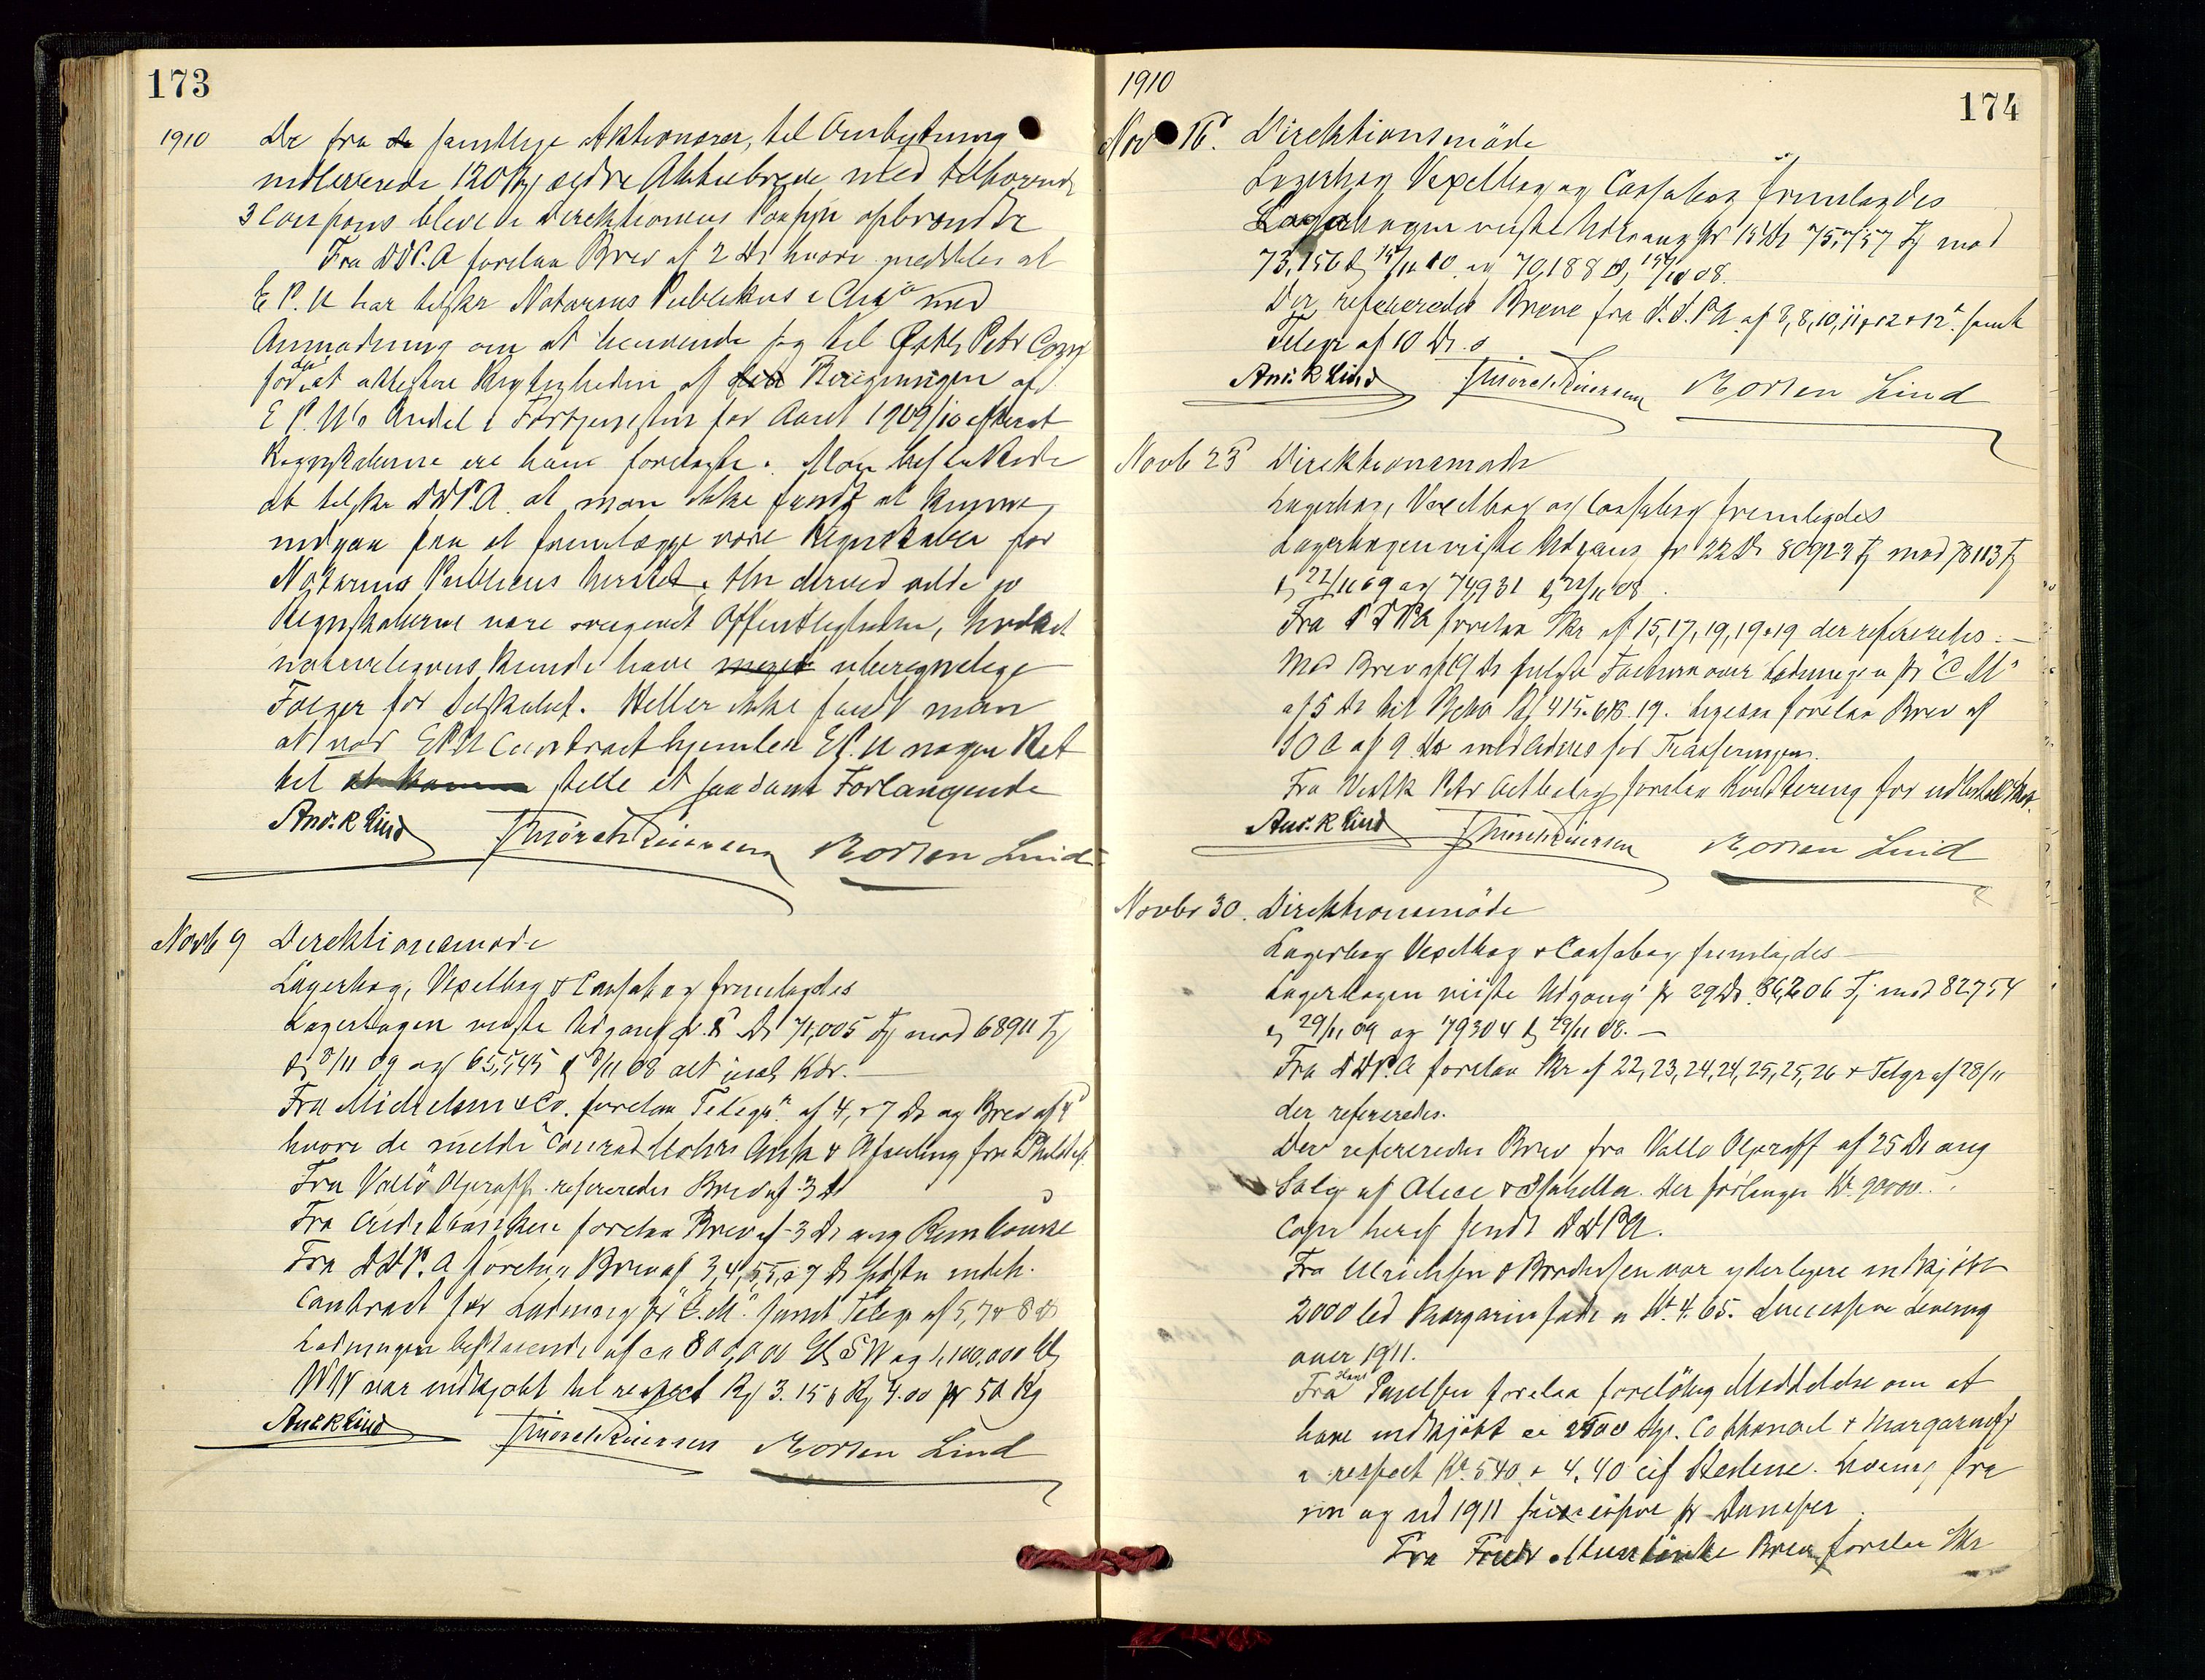 173
1910 De fra samtlige Aktionærer, til Ombytning
indleverede 120 ældre Aktiebreve med tilhørende
3 Coupons bleve i Direktionens Paasyn opbrændte
Fra DDPA forelaa Brev af 2 Ds hvori meddeles at
E P. U har tilskr Notarius Publikus i Chria med
Anmodning om at henvende sig til Østl Petr Comp
for at attestere Rigtigheden af Beregningen af
E P. U's Andel i Fortjenesten for Aaret 1909/10 efterat
Regnskaberne ere ham forelagte. Man besluttede
at tilskr DDPA at man ikke fandt at kunne
indgaa paa at fremlægge vore Regnskaber for
Notarius Publicus herstet. Thi derved vilde jo
Regnskaberne være overgivet Offentligheden, hvilket
naturligvis kunde have uberegnelige
Følger for Selskabet. Heller ikke fandt man
at vor EPU Contract hjemler E P. U nogen Ret
til stille et saadant Forlangende
Andr. K Lind Thv Mørch Reiersen Morten Lind
Novb 9 Direktionsmøde
Lagerbog, Vexelbog & Cassabog fremlagdes
Lagerbogen viiste Udgang pr. 8 Ds 71,005 Fj mod 68911 Fj
8/11 09 og 65,545 8/11 08 alt incl. Kdr.
Fra Michelsen & Co. forelaa Telegr. af 4, & 7 Ds og Brev af 4
hvori de melde Conrad Mohrs Ank & Afseiling fra
Fra Vallö Oljeraff. refereredes Brev af 3 Ds
Fra Creditbanken forelaa Brev af 3 Ds ang Rembourse
Fra DDPA forelaa Brev af 3, 4, 5, 5, & 7 Ds sidste indeh.
Contract for Ladning pr "C.M." samt Telegr af 5, 7 & 8 Ds
Ladningen bestaaende af ca 800,000 SW og 1,100,000
WW var indkjøbt til respect 3.15 & 4.00 pr 50 Kg
Andr. K Lind Thv Mørch Reiersen Morten Lind
1910
174
Nov 16. Direktionsmöde
Lagerbog Vexelbog og Cassabog fremlagdes
Lagerbogen viiste Udgang pr 15 Ds 75,757 Fj mod
73,156 og 70,188 08.
Der refereredes Breve fra D.D.P.A. af 8, 8, 10, 11 & 12 & 12 samt
Telegr af 10 Ds.
Andr. K Lind Thv Mørch Reiersen Morten Lind
Novb 23 Direktionsmøde
Lagerbog, Vexelbog og Cassabog fremlagdes
Lagerbogen viiste Udgang pr 22 Ds 80923 Fj mod 78113 Fj
22/11 09 og 74,931 22/11 08.
Fra DDPA forelaa Skr af 15, 17, 19, 19 & 19 der refereredes.—
Med Brev af 19 Ds fulgte Factura over Ladningen pr "C M"
af 5 Ds til Beløb 415.618.19. Ligesaa forelaa Brev af
af 9. Ds med
Fra Vestl Petr forelaa Kvittering for
Andr. K Lind Thv Mørch Reiersen Morten Lind
Novbr 30. Direktionsmöde
Lagerbog Vexelbog & Cassabog fremlagdes—
Lagerbogen viiste Udgang pr 29 Ds. 86,206 Fj mod 82754
29/11 09 og 79304 29/11 08.—
Fra DDPA forelaa Skr af 22, 23, 24, 24, 25, 25, 26 & Telgr af 28/11
der refereredes.
Der refereredes Brev fra Vallo Oljeraff af 25 Ds ang
Salg af Alice & Isabella. Der forlanges Kr 90000.
Copi heraf sendt DDPA.
Fra Ulrichsen & var yderligere indkjöbt
2000 led Margarinfade a Kr. 4.65. Successive Levering
over 1911.
Fra Hans Poulsen forelaa forelöbig Meddelelse om at
have indkjöbt ca 2500 Cottonoel & Margarinefade
a respect Kr. 5.40 & 4.40 cif Stedene. Levering fra
nu og ud 1911 successive pr Damper.
Fra forelaa Skr